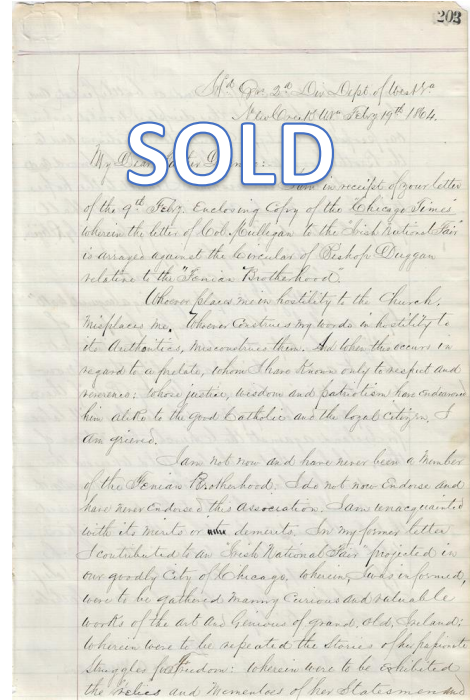 203
Hd Qrs 2d Div Dept of West Va
New Creek Va Feby 19th 1864.
SOLD
My Dear
I am in receipt of your letter
of the 9th Feby. Enclosing Copy of the Chicago Times
wherein the letter of Col. Mulligan to the Irish National Fair
is arrayed against the Circular of Bishop Duggan
relative to the "Fenian Brotherhood".
Whoever places me in hostility to the Church,
misplaces me. Whoever construes my words in hostility to
its Authorities, misconstrues them. And when this occurs in
regard to a prelate, whom I have Known only to respect and
reverence; whose justice, wisdom and patriotism have endeared
him alike to the good Catholic and the loyal Citizen, I
am grieved.
I am not now and have never been a Member
of the Fenian Brotherhood. I do not now Endorse and
have never Endorsed this association. I am unacquainted
with its merits or demerits. In my former letter,
I contributed to an Irish National Fair projected in
our goodly City of Chicago, wherein, I was informed,
were to be gathered many Curious and valuable
works of the art and Genious of grand, old, Ireland;
wherein were to be repeated the Stories of her
struggles for freedom: wherein were to be Exhibited
the relics and Mementoes of her Statesmen and